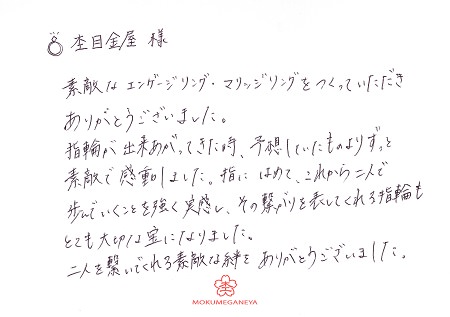 杢目金屋 様
素敵なエンゲージリング・マリッジリングをつくっていただき
ありがとうございました。
指輪が出来あがってきた時、予想していたものよりずっと
素敵で感動しました。指にはめて、これから二人で
歩んでいくことを強く実感し、その繋がりを表してくれる指輪も
とても大切な宝になりました。
二人を繋いでくれる素敵な絆をありがとうございました。
MOKUMEGANEYA